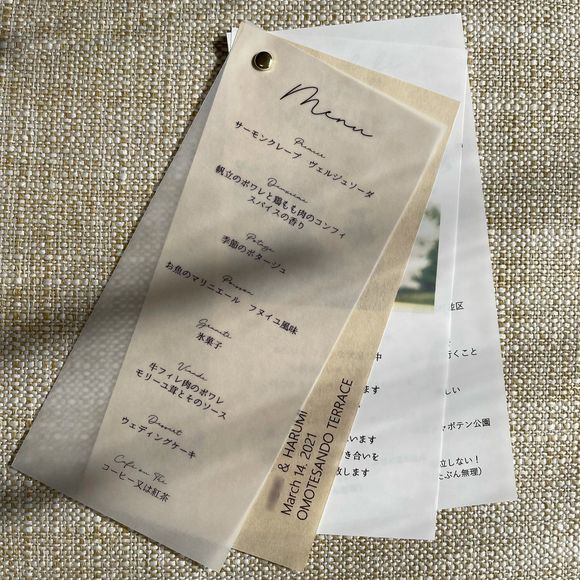 Menu
サーモンクレープ　ヴェルジュソーダ
帆立のポワレと鶏もも肉のコンフィ
スパイスの香り
Potage
季節のポタージュ
Poisson
お魚のマリニエール　フヌイユ風味
Granité
氷菓子
Viande
牛フィレ肉のポワレ
モリーユ茸とそのソース
Dessert
ウェディングケーキ
Café ou Thé
コーヒー又は紅茶
& HARUMI
March 14, 2021
OMOTESANDO TERRACE
並区
中
行くこと
ます
しい
ャボテン公園
います
き合いを
致します
立しない！
たぶん無理)